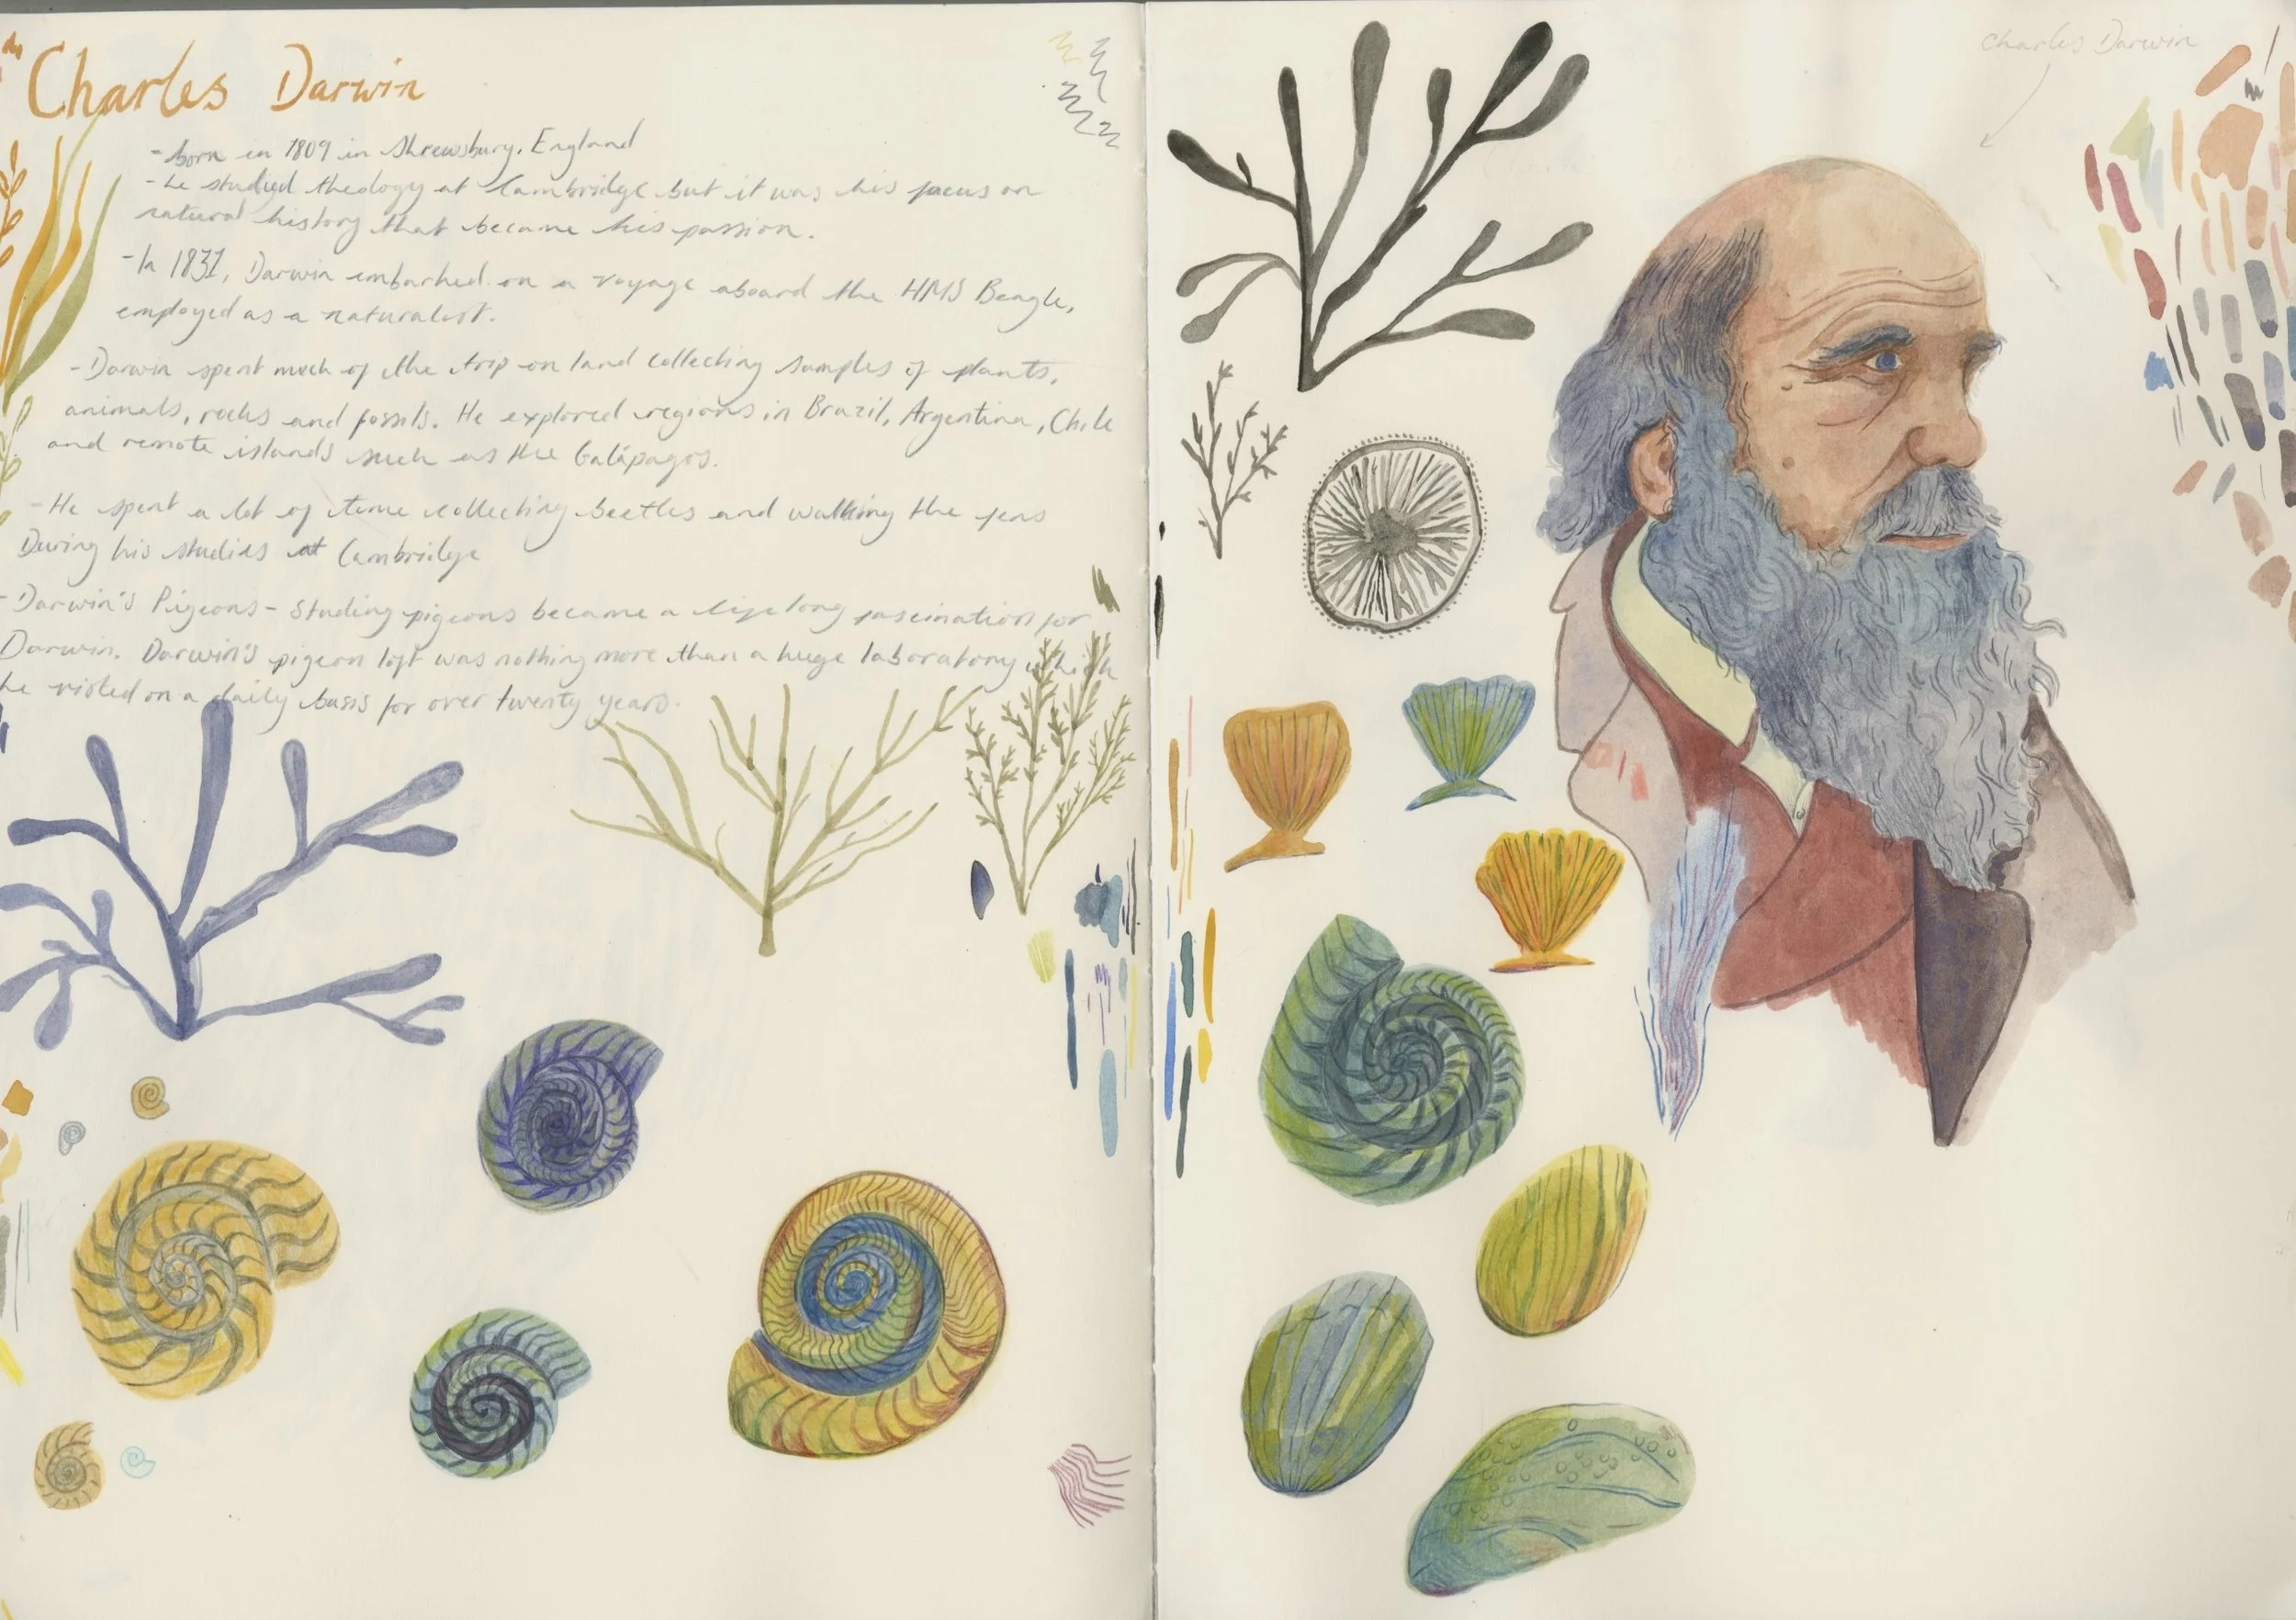 Charles Darwin
- born in 1809 in Shrewsbury, England
- he studied theology at Cambridge but it was his focus on
natural history that became his passion.
- In 1831, Darwin embarked on a voyage aboard the HMS Beagle,
employed as a naturalist.
- Darwin spent much of the trip on land collecting samples of plants,
animals, rocks and fossils. He explored regions in Brazil, Argentina, Chile
and remote islands such as the Galápagos.
- He spent a lot of time collecting beetles and walking the fens
During his studies at Cambridge
- Darwin's Pigeons - Studing pigeons became a life long fascination for
Darwin. Darwin's pigeon loft was nothing more than a huge laboratory which
he visited on a daily basis for over twenty years.
Charles Darwin